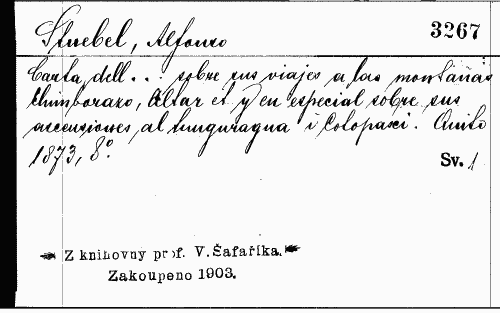 Stuebel, Alfonso
3267
Carta dell... sobre sus viajes a las montañas
Chimborazo, Altar et y en especial sobre sus
ascensiones al tunguragua i Cotopaxi. Quito
1873, 8°.
Sv. 1
Z knihovny prof. V. Šafaříka.
Zakoupeno 1903.